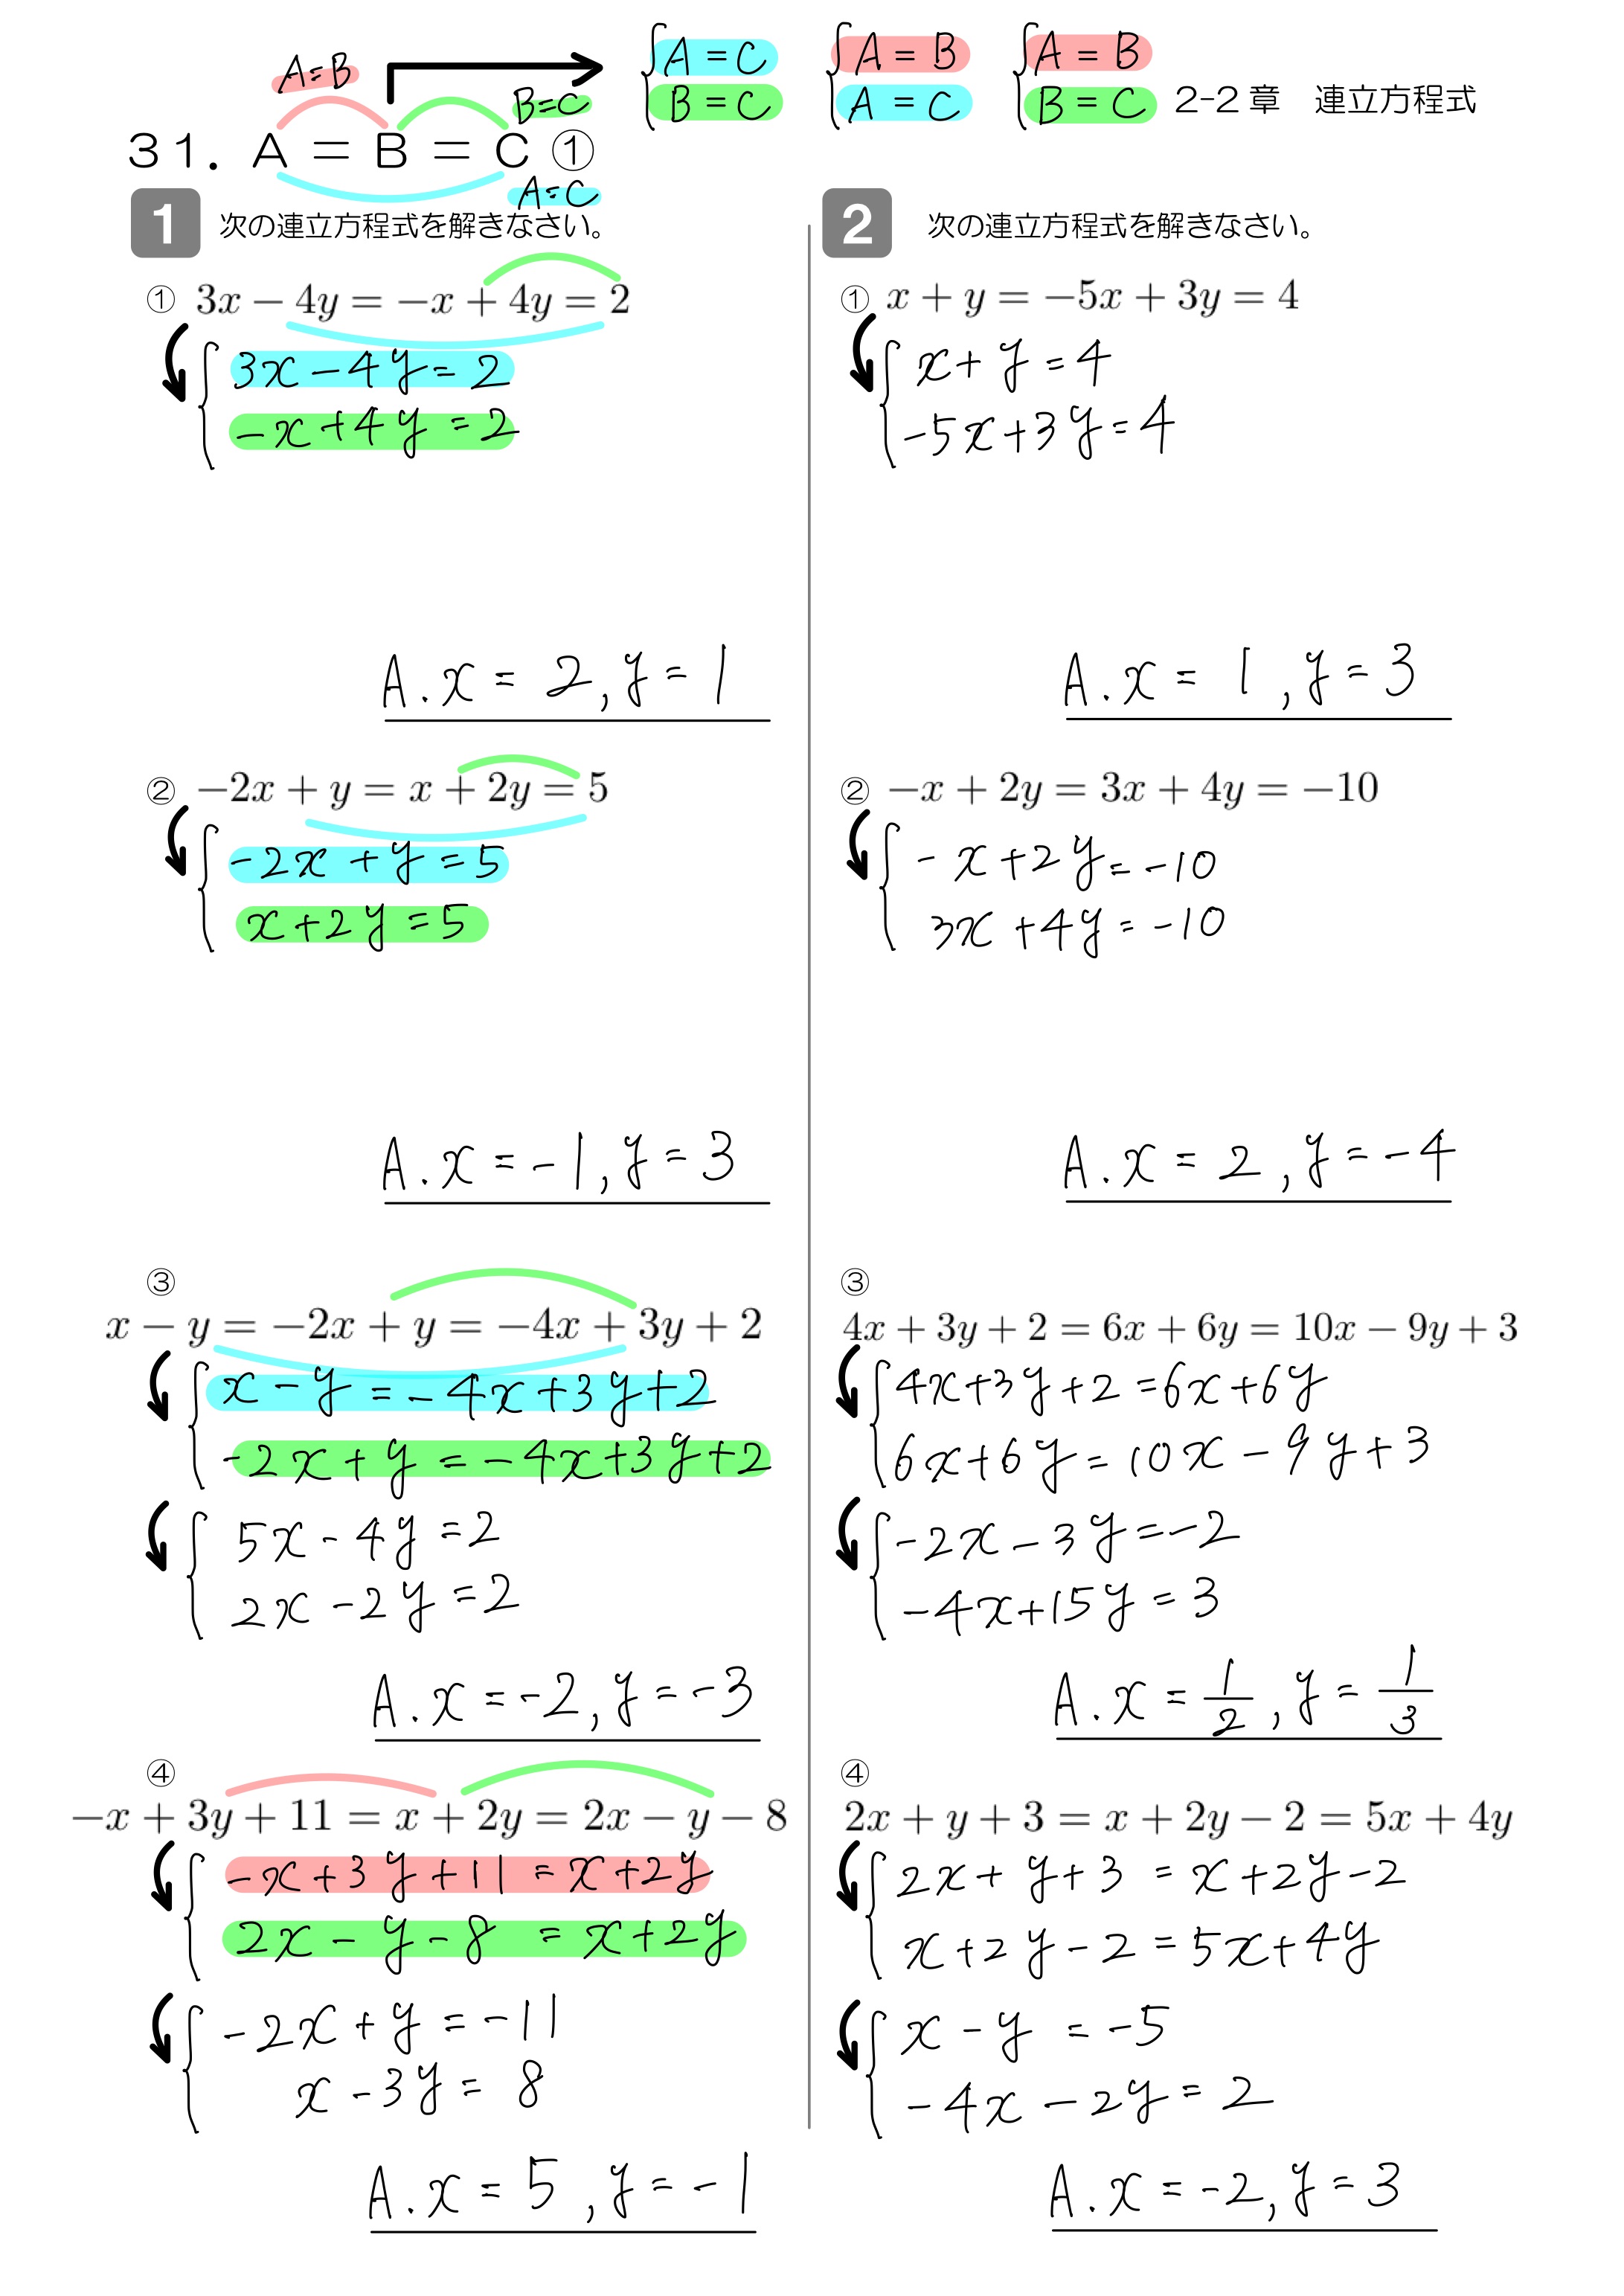 A=B
B=C
A=C
B=C
A=B
A=C
A=B
B=C
2-2章 連立方程式
31. A=B=C ①
A=C
1 次の連立方程式を解きなさい。
① 3x-4y=-x+4y=2
3x-4y=2
-x+4y=2
A.x=2,y=1
② -2x+y=x+2y=5
-2x+y=5
x+2y=5
A.x=-1,y=3
③
x-y=-2x+y=-4x+3y+2
x-y=-4x+3y+2
-2x+y=-4x+3y+2
5x-4y=2
2x-2y=2
A.x=-2,y=-3
④
-x+3y+11=x+2y=2x-y-8
-x+3y+11=x+2y
2x-y-8=x+2y
-2x+y=-11
x-3y=8
A.x=5,y=-1
2 次の連立方程式を解きなさい。
① x+y=-5x+3y=4
x+y=4
-5x+3y=4
A.x=1,y=3
② -x+2y=3x+4y=-10
-x+2y=-10
3x+4y=-10
A.x=2,y=-4
③
4x+3y+2=6x+6y=10x-9y+3
4x+3y+2=6x+6y
6x+6y=10x-9y+3
-2x-3y=-2
-4x+15y=3
A.x=1/2,y=1/3
④
2x+y+3=x+2y-2=5x+4y
2x+y+3=x+2y-2
x+2y-2=5x+4y
x-y=-5
-4x-2y=2
A.x=-2,y=3